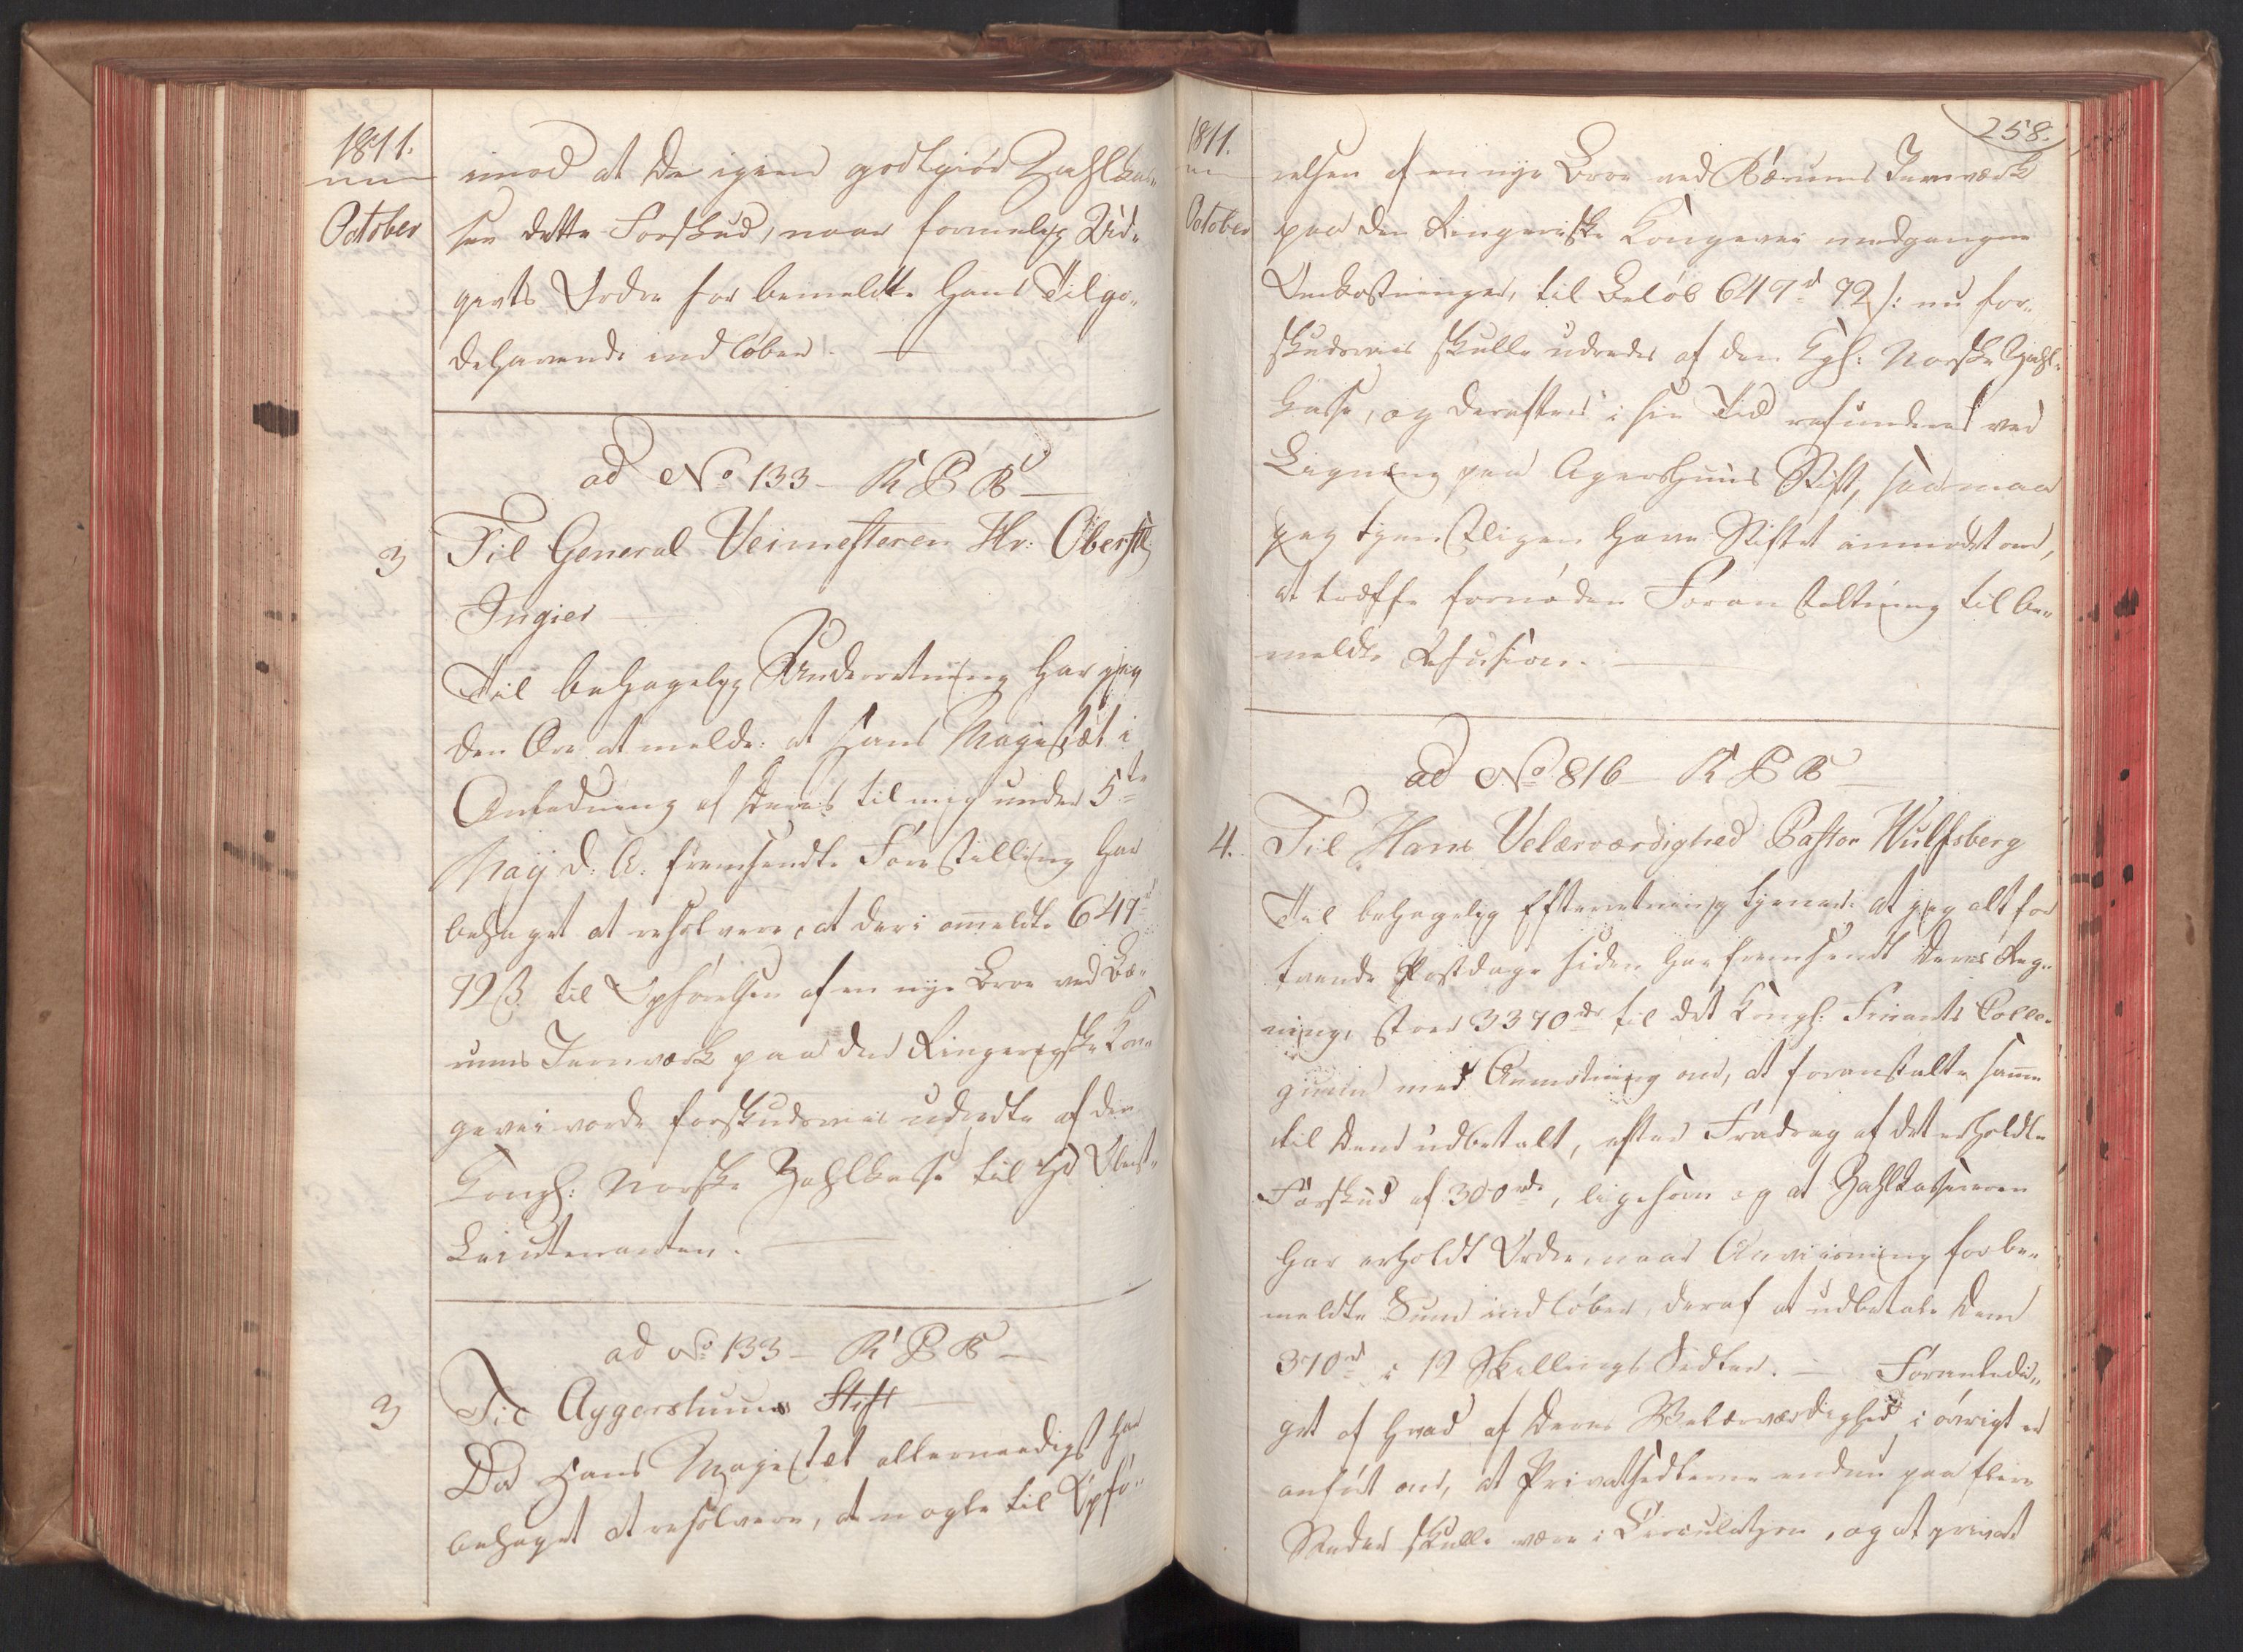 1811.
October
imod at De igien godtgiør Zahlkas-
sen dette Forskud, naar formelig Ud-
givts Ordre for bemeldte hans Tilgo-
dehavende indløber. —
ad No 133 — R P B —
3 Til General Veimesteren Hr: Oberstl:
Ingier —
Til behagelig Underretning har jeg
den Ære at melde: at Hans Majestæt i
Anledning af Deres til mig under 5te
Maij d: A: fremsendte Forestilling har
behaget at resolvere, at deri ommeldte 649 rd
92 ß til Opførelsen af en nye Broe ved Bæ-
rums Jernværk paa den Ringerigske Kon-
gevei vorde forskudsviis udredte af den
Kongl: Norske Zahlkasse til Hr Oberst-
Lieutenanten. —
ad No 133 — R P B —
3 Til Aggershuus Stift —
Da Hans Majestæt allernaadigst har
behaget at resolvere, at nogle til Opfø-
258.
1811.
October
relsen af en nye Broe ved Bærums Jernværk
paa den Ringeriske Kongevei medgangne
Omkostninger, til Beløb 649 rd 92 ß: nu for-
skudsviis skulle udredes af den Kgl: Norske Zahl-
kasse, og derefter i sin Tid refunderes ved
Ligning paa Agershuus Stift, saa maa
jeg tjenstligen have Stiftet anmodet om,
at træffe fornøden Foranstaltning til be-
meldte Refusion. —
ad No 816 — R P B —
4. Til Hans Velærværdighed Pastor Wulfsberg
Til behagelig Efterretning tjener: at jeg alt for
tvende Postdage siden har fremsendt Deres Reg-
ning, stor 3370 rdr til det Kongl: Finants Colle-
gium med Anmodning om, at foranstalte samme
til Dem udbetalt, efter Fradrag af det erholdte
Forskud af 300 rdr, ligesom og at Zahlkasserern
har erholdt Ordre, naar Anviisning for be-
meldte Sum indløber, deraf at udbetale Dem
370 rd i 12 Skillings Sedler. — Foranledi-
get af hvad af Deres Velærværdighed i øvrigt er
anført om, at Privatsedlerne endnu paa flere
Steder skulle være i Circulation, og at privat